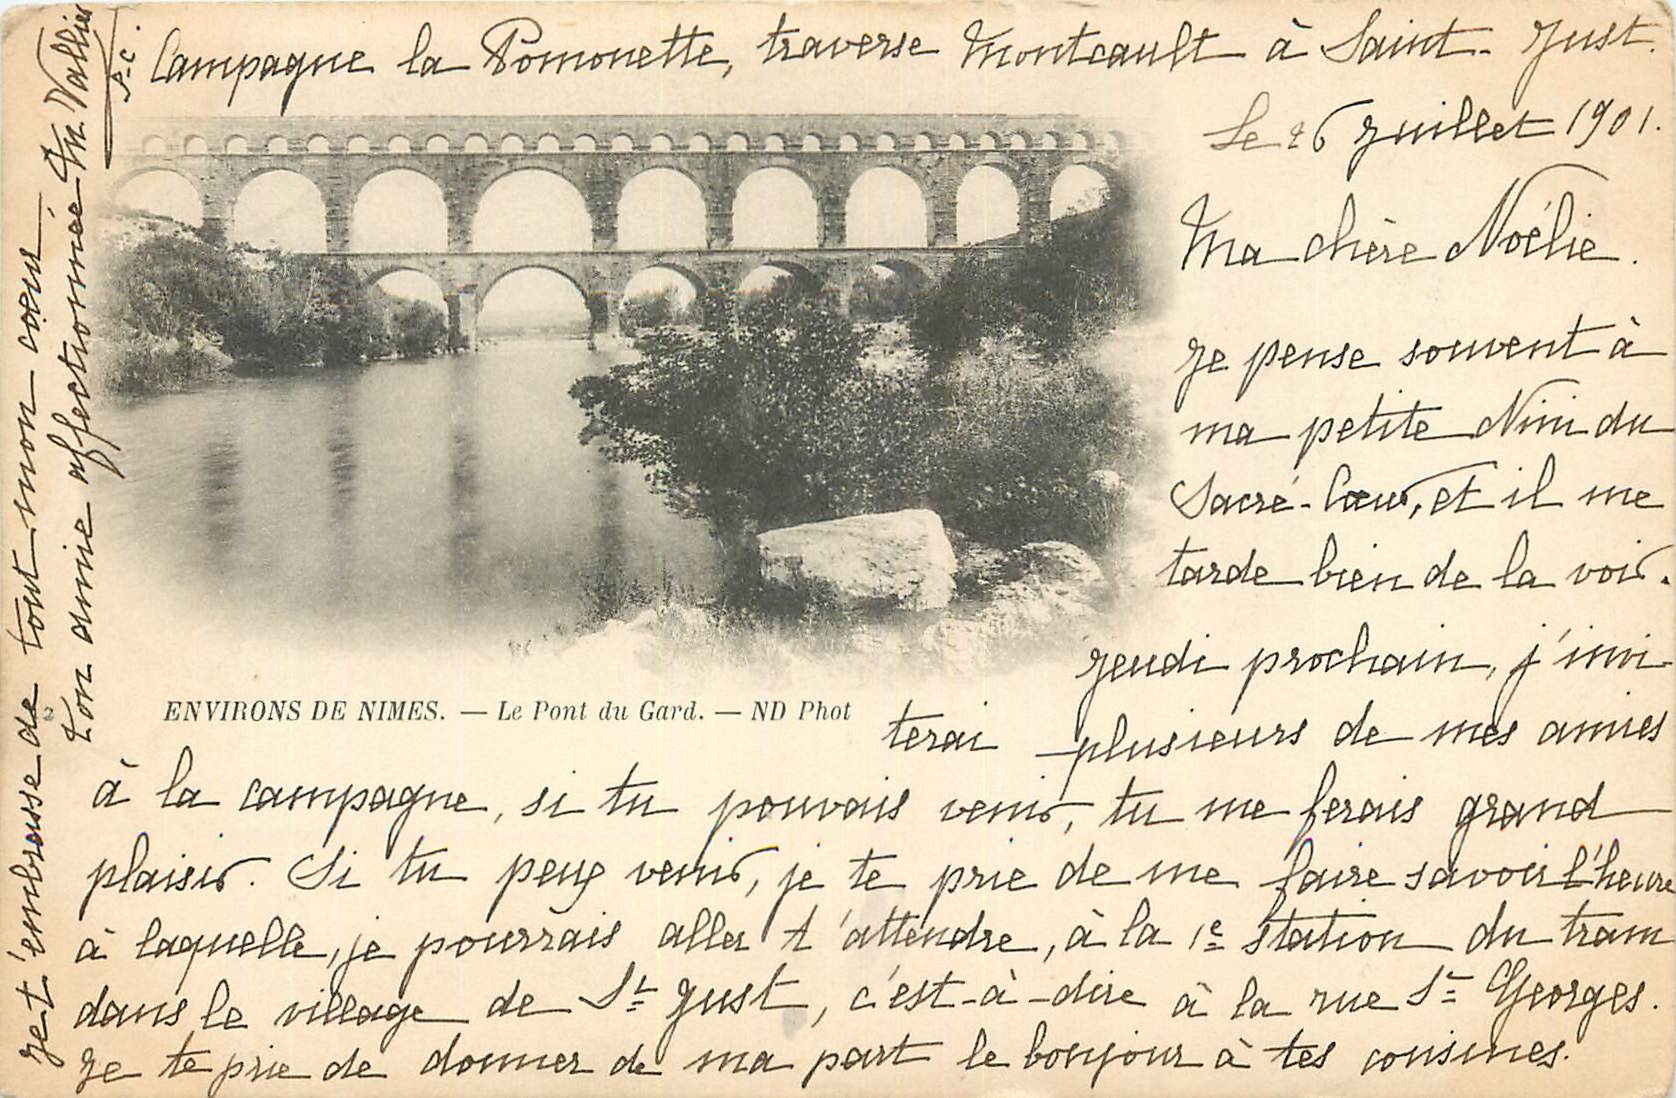 Campagne la Pomonette, traverse Montcault à Saint-Just.
Le 26 Juillet 1901.
Ma chère Noélie.
Je pense souvent à
ma petite Nini du
Sacré-Cœur, et il me
tarde bien de la voir.
Jeudi prochain, j'invi
terai plusieurs de mes amies
à la campagne, si tu pouvais venir, tu me ferais grand
plaisir. Si tu peux venir, je te prie de me faire savoir l'heure
à laquelle, je pourrais aller t'attendre, à la 1e station du tram
dans le village de St Just, c'est-à-dire à la rue St Georges.
Je te prie de donner de ma part le bonjour à tes cousines.
Je t'embrasse de tout mon cœur
Ton amie affectionnée M. Vallier
2 ENVIRONS DE NIMES. — Le Pont du Gard. — ND Phot